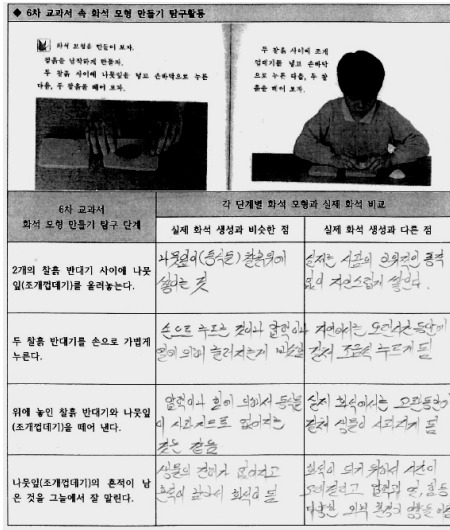 ◆ 6차 교과서 속 화석 모형 만들기 탐구활동
화석 모형을 만들어 보자.
찰흙을 납작하게 만들자.
두 찰흙 사이에 나뭇잎을 넣고 손바닥으로 누른
다음, 두 찰흙을 떼어 보자.
두 찰흙 사이에 조개
껍데기를 넣고 손바닥
으로 누른 다음, 두 찰
흙을 떼어 보자.
6차 교과서
화석 모형 만들기 탐구 단계
각 단계별 화석 모형과 실제 화석 비교
실제 화석 생성과 비슷한 점
실제 화석 생성과 다른 점
2개의 찰흙 반대기 사이에 나뭇
잎(조개껍데기)를 올려놓는다.
나뭇잎이(동식물) 찰흙위에
쌓이는 것
실제는 사람의 인위적인 동작
없이 자연스럽게 쌓인다.
두 찰흙 반대기를 손으로 가볍게
누른다.
손으로 누르는 것이나 압력이나
열에 의해 눌러지는게 비슷함
자연에서는 오랜시간 동안에
걸쳐 조금씩 누르게 됨
위에 놓인 찰흙 반대기와 나뭇잎
(조개껍데기)을 떼어 낸다.
압력이나 열에 의해서 동식물
이 사라지므로 없어지는
것은 같음
실제 화석에서는 오랜동안에
걸쳐 생물이 사라지게 됨
나뭇잎(조개껍데기)의 흔적이 남
은 것을 그늘에서 잘 말린다.
생물의 전체가 없어지고
흔적이 남아서 화석이 됨
화석이 되기 위해서 시간이
오래걸리고 압력과 열, 힘등
다양한 외부 환경의 영향을 받음